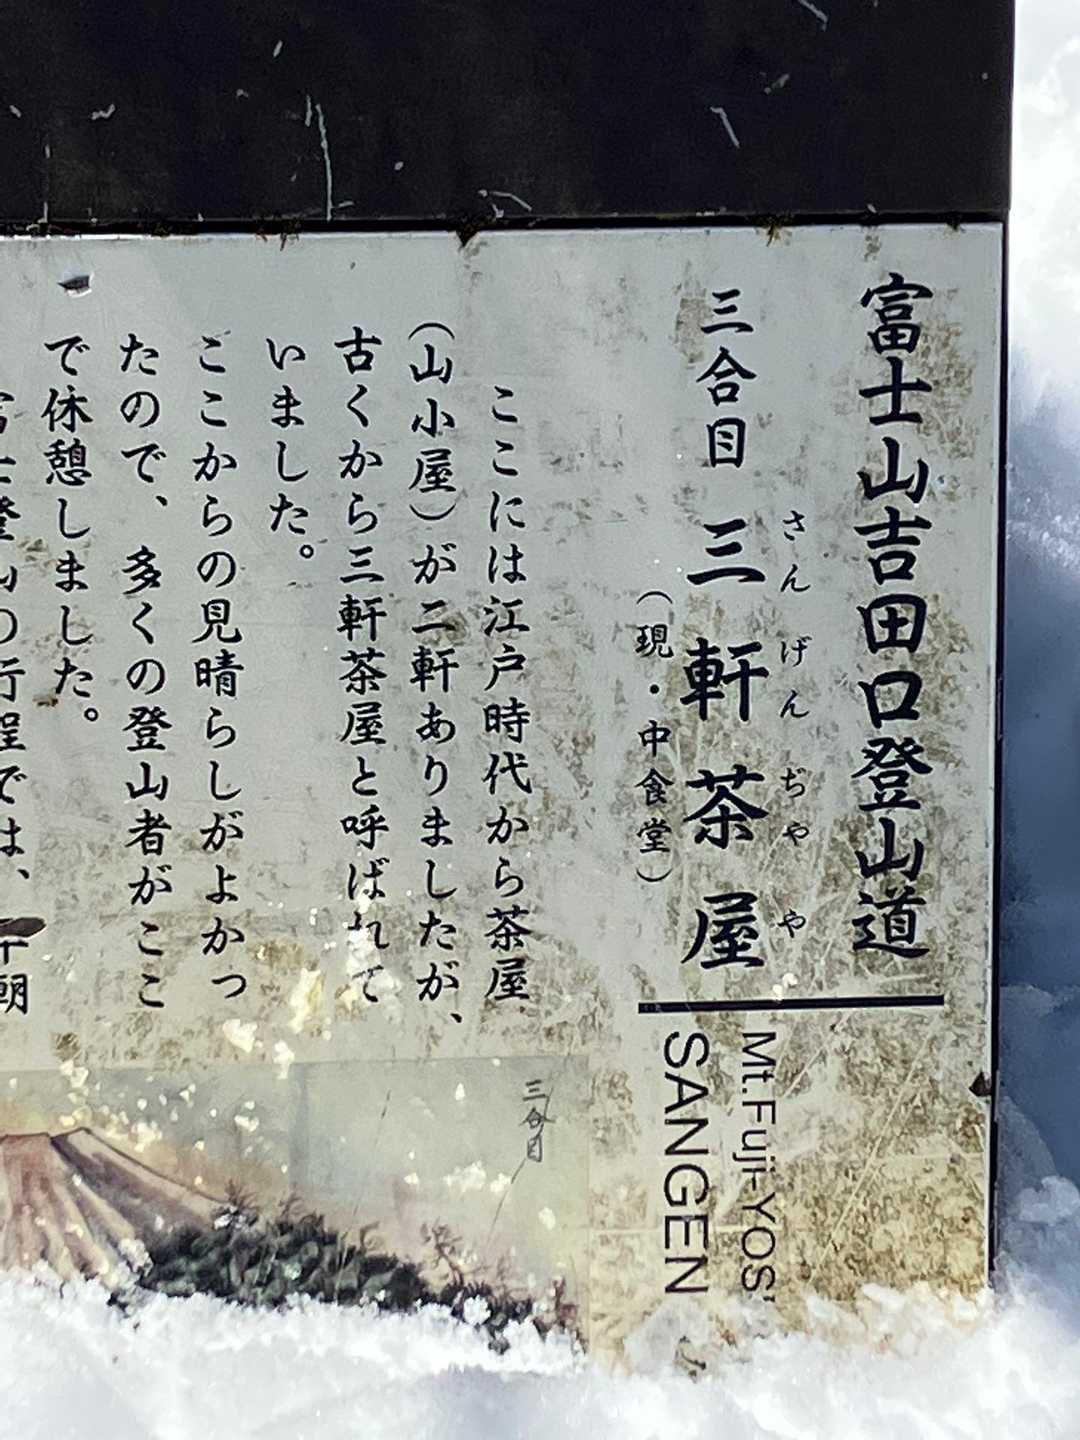 富士山吉田口登山道
三合目 三軒茶屋
さんげんぢやや
（現・中食堂）
Mt.Fuji-YOS
SANGEN
ここには江戸時代から茶屋
（山小屋）が二軒ありましたが、
古くから三軒茶屋と呼ばれて
いました。
ここからの見晴らしがよかっ
たので、多くの登山者がここ
で休憩しました。
登山の行程では、早朝
三合目